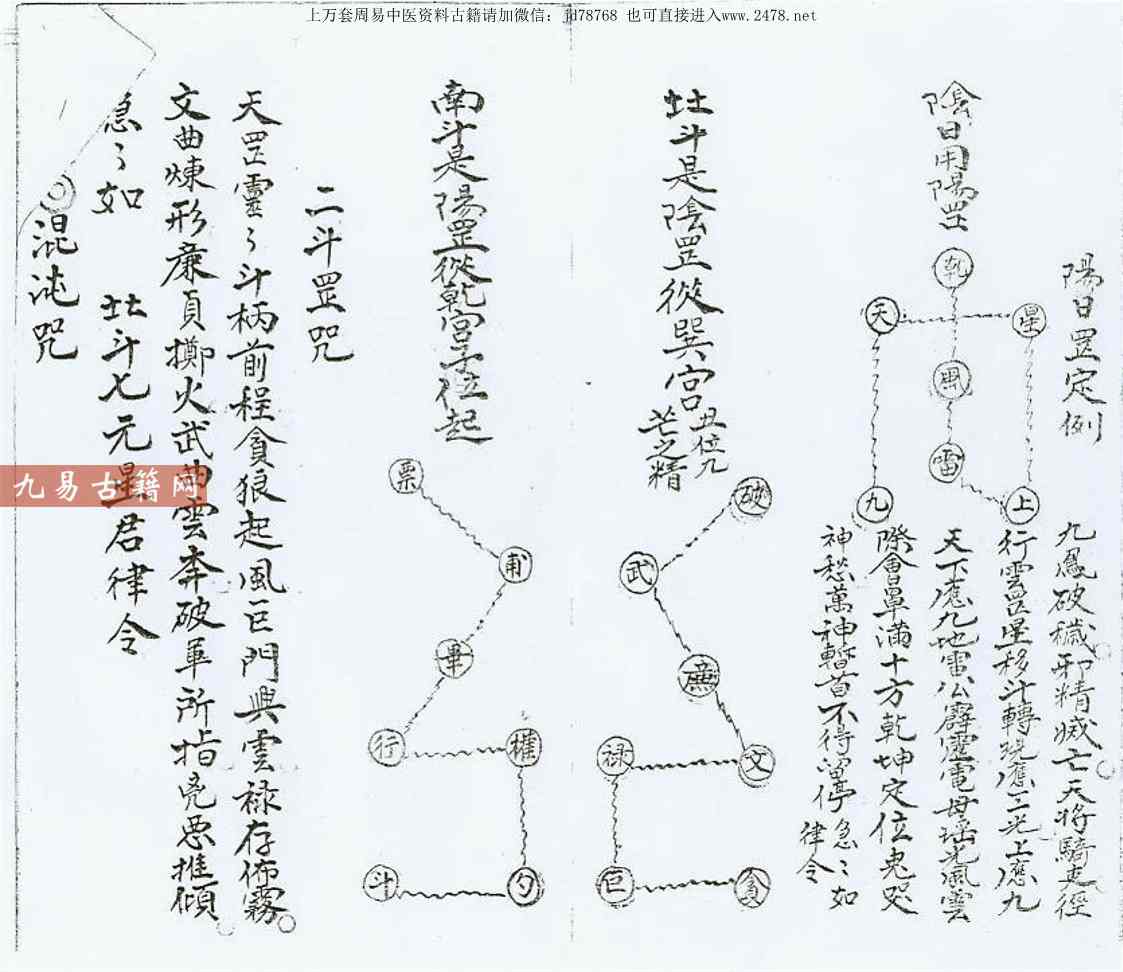 上万套周易中医资料古籍请加微信：jd78768 也可直接进入www.2478.net
陽日罡定例
陰日用陽罡
乾
天
星
風
雷
九
上
九鳳破穢邪精滅亡天将騎吏徑
行雲罡星移斗轉現應三光上應九
天下應九地雷公霹靂電母瑶光風雲
際會罩滿十方乾坤定位鬼哭
神愁萬神暫首不得留停急〻如
律令
北斗是陰罡從巽宮
丑位九
芒之精
破
武
廉
禄
文
巨
貪
南斗是陽罡從乾宮子位起
票
甫
畢
行
權
斗
勺
二斗罡咒
天罡靈〻斗柄前程貪狼起風巨門興雲禄存佈霧
文曲煉形廉貞擲火武曲雲奔破軍所指兇惡摧傾
急〻如　北斗七元星君律令
混沌咒
九易古籍网